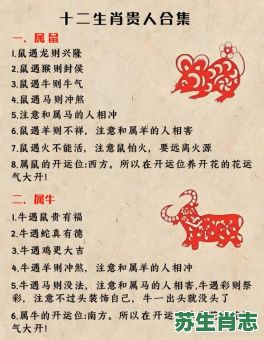 十二生肖贵人合集
一、属鼠
1.鼠遇龙则兴隆
2.鼠遇猴则封侯
3.鼠遇牛则牛气
4.鼠遇马则冲煞
5.注意和属马的人相冲
6.鼠遇羊则不祥，注意和属羊的人相害
7.鼠遇火不能活，注意鼠怕火，要远离火源
8.属鼠的开运位:西方。所以在开运位养开花的花运
气大开!
二、属牛
1.牛遇鼠贵有福
2.牛遇蛇真有德
3.牛遇鸡更大吉
4.牛遇羊则冲煞，注意和属羊的人相冲
5.牛遇马则没法，注意和属马的人相害,牛遇彩则祭
彩，注意不过头装饰自己，牛一出头就没头了
6.属牛的开运位:南方。所以在开运位养开花的花运
气大开!
苏生肖志